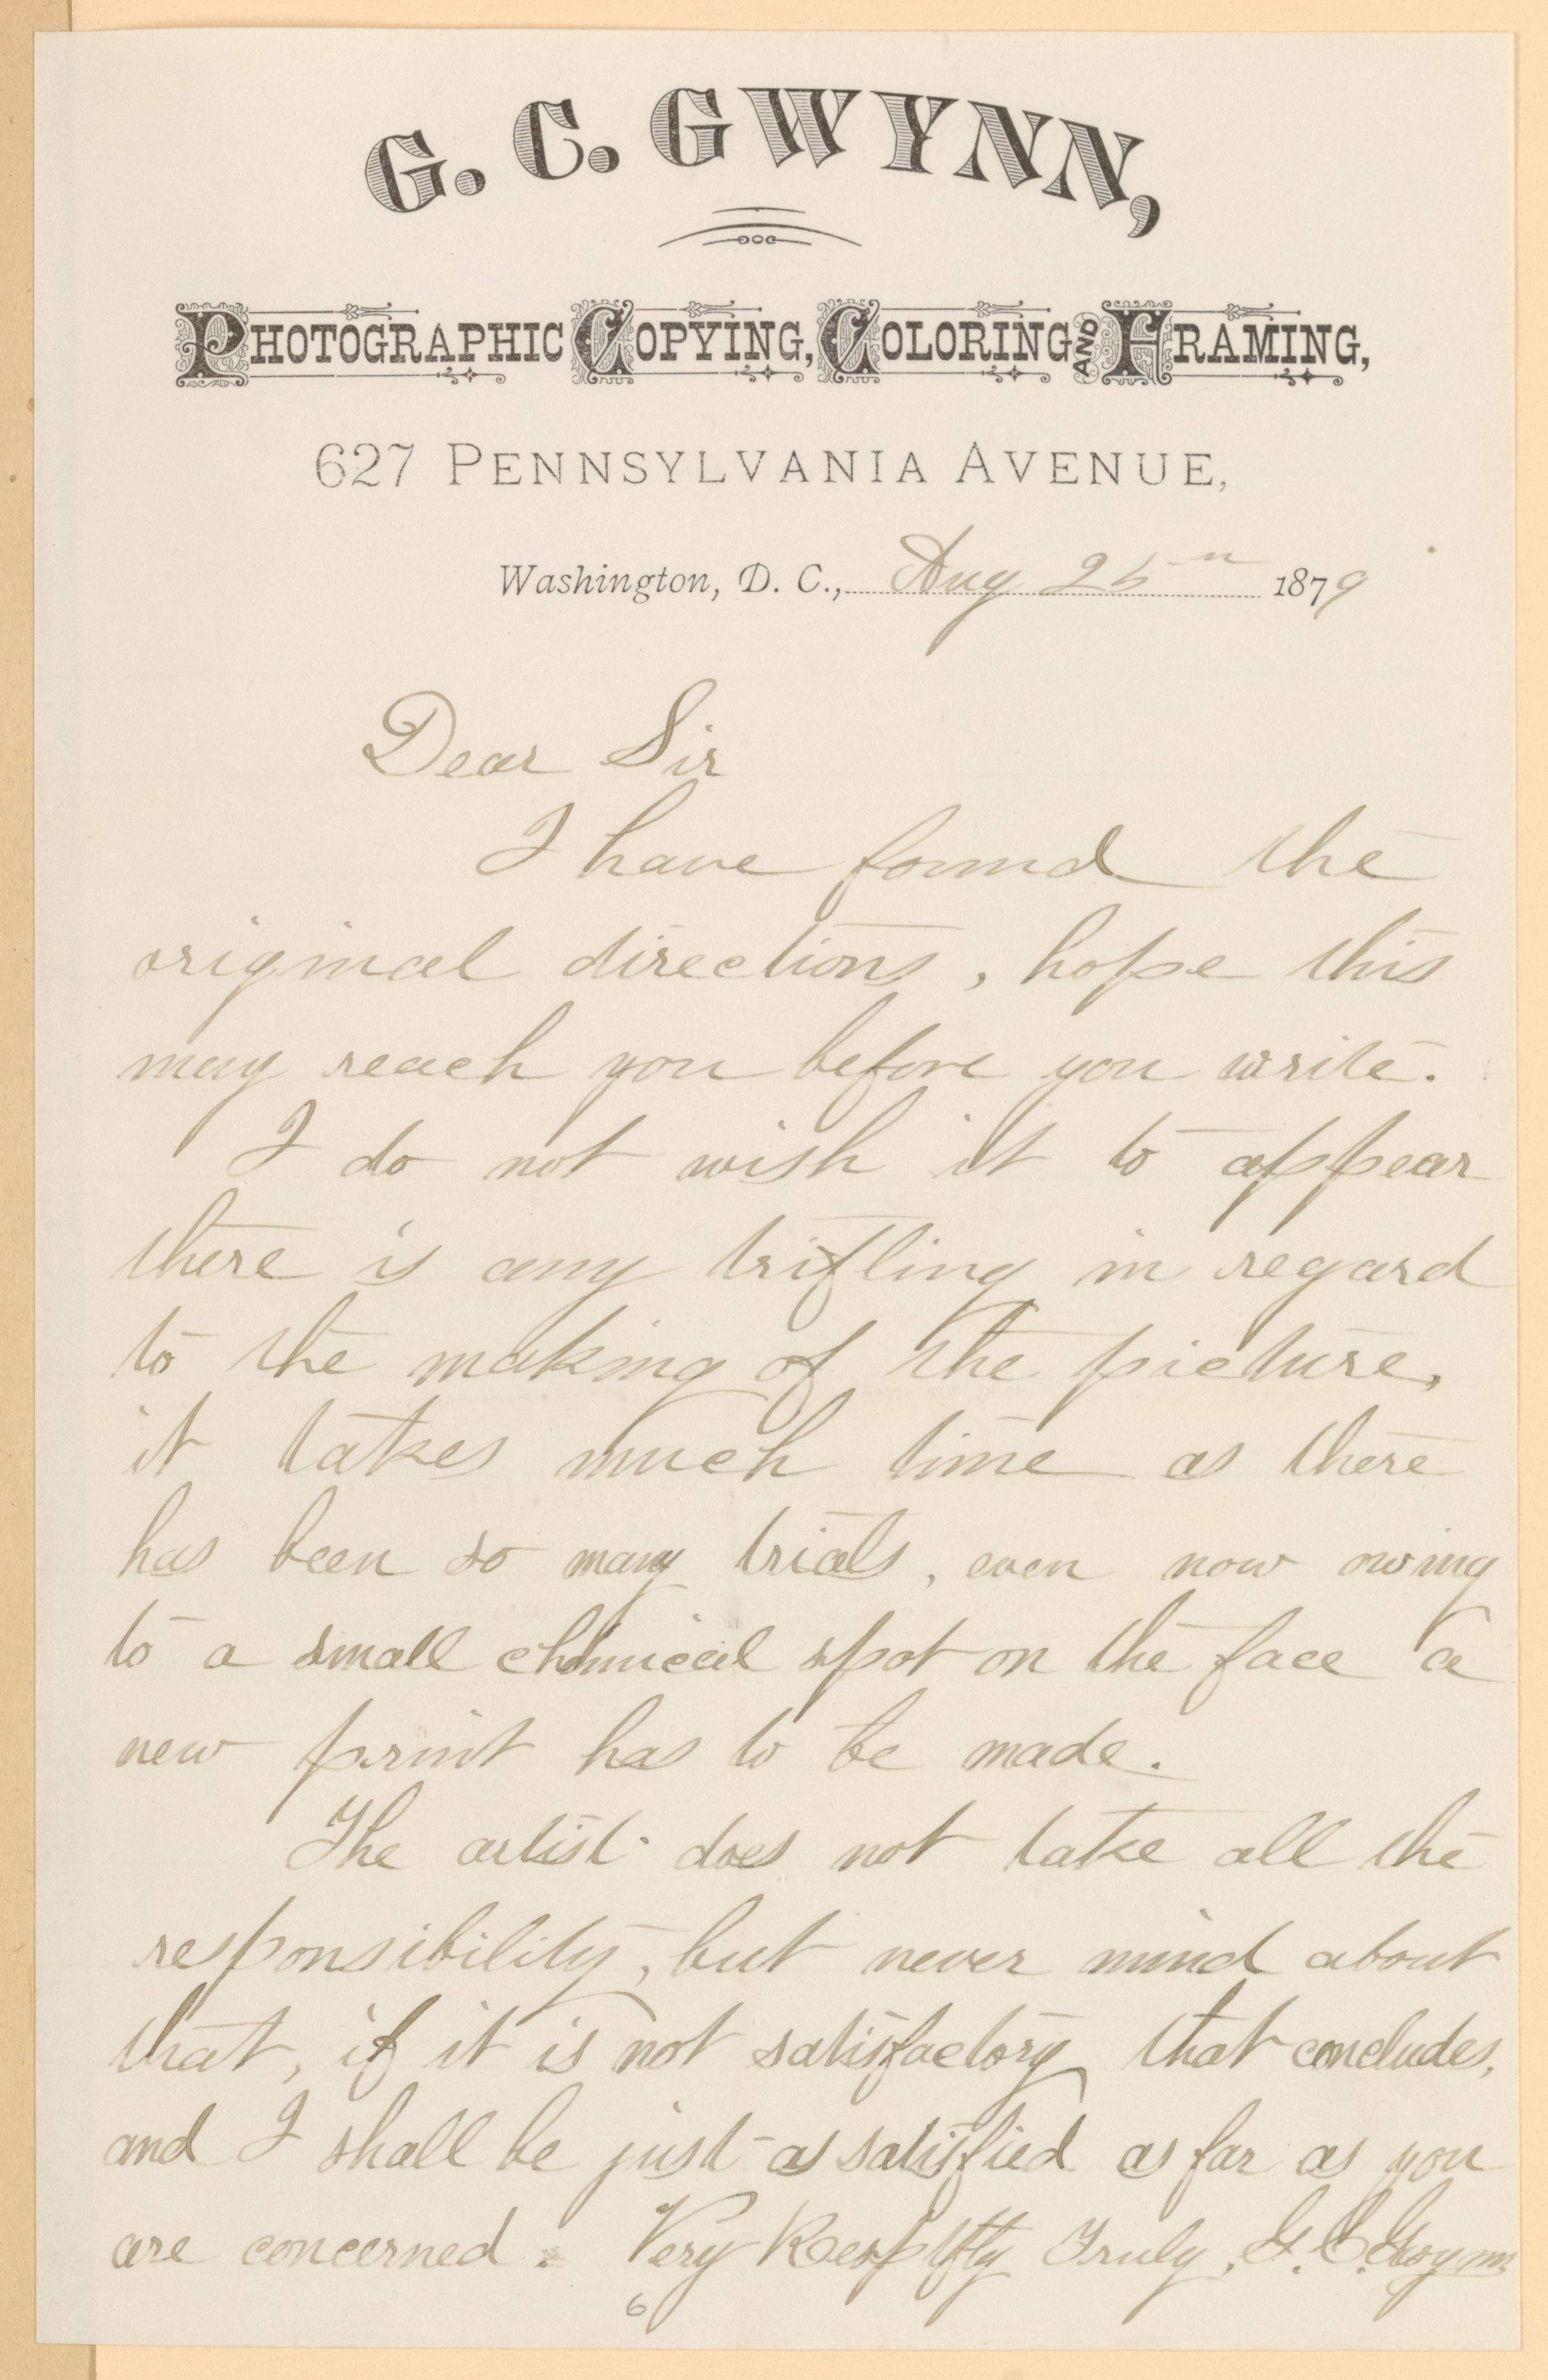 G. C. GWYNN,
PHOTOGRAPHIC COPYING, COLORING AND FRAMING,
627 PENNSYLVANIA AVENUE,
Washington, D. C., Aug 25th 1879
Dear Sir
I have found the
original directions, hope this
may reach you before you write.
I do not wish it to appear
there is any trifling in regard
to the making of the picture,
it takes much time as there
has been so many trials, even now owing
to a small chemical spot on the face a
new print has to be made.
The artist does not take all the
responsibility, but never mind about
that, if it is not satisfactory that concludes,
and I shall be just as satisfied as far as you
are concerned. Very Respctfly Truly, G. C. Gwynn
6